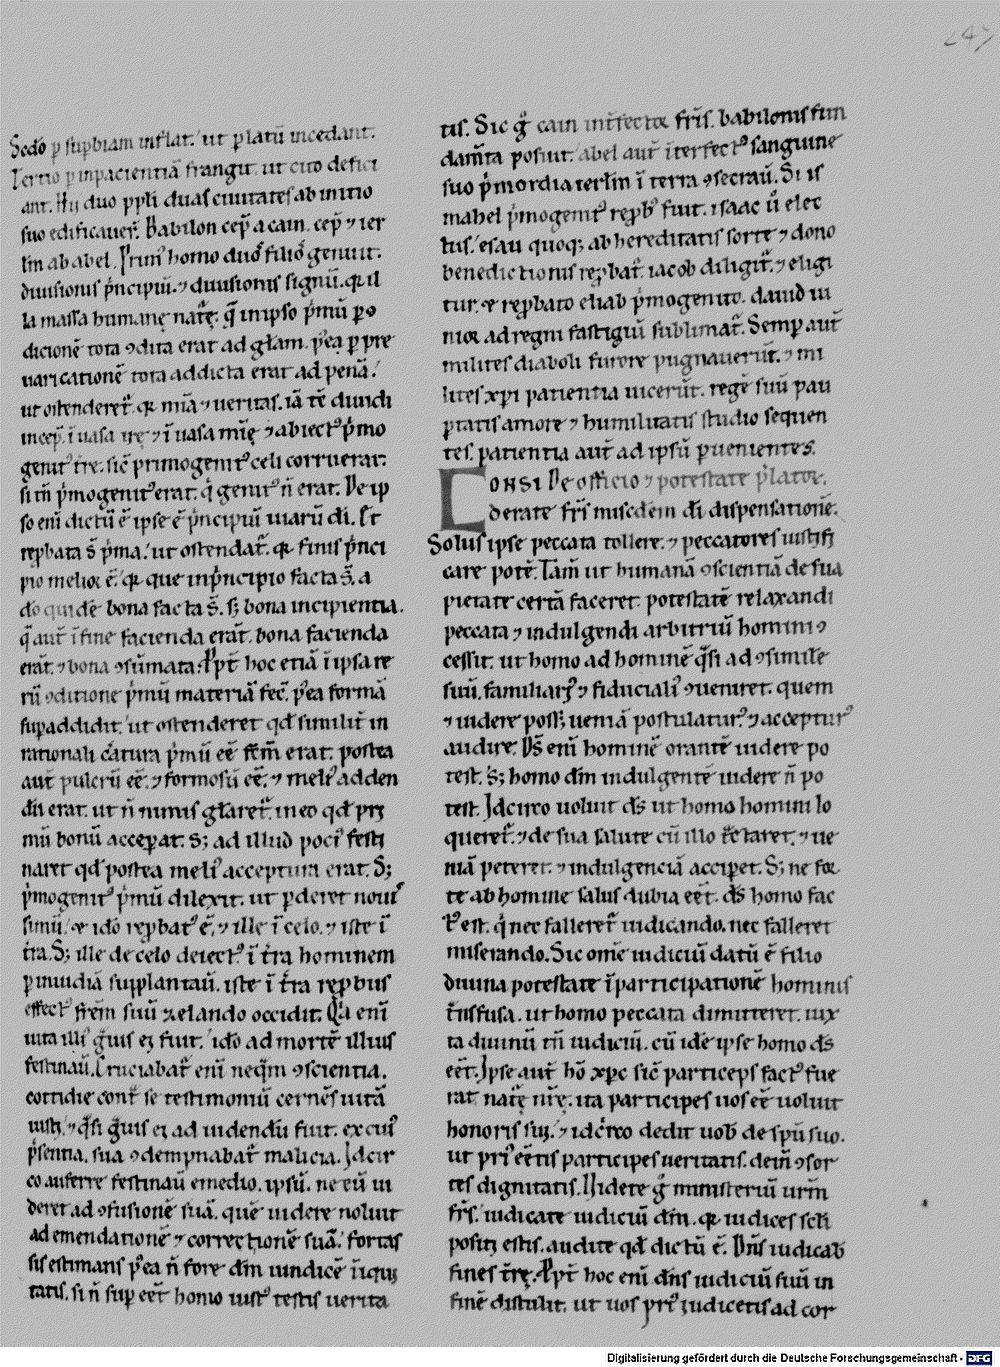 247
Scdō p supbiam inflat. ut p latū incedant.
Tertio p inpacientiā frangit. ut cito defici
ant. Hii duo ppli duas ciuitates ab initio
suo edificauer̄. Babilon cep̄ a cain. cep̄ ⁊ ier
lm̄ ab abel. Prim᷒ homo duos filios genuit.
diuisionis p̄ncipiū. ⁊ diuisionis signū. qr il
la massa humanę nat᷑ę. q̄ in ipso p̄mū p ꝯ
dicionē tota ꝯdita erat ad glam. p᷒ea p pre
uaricationē tota addicta erat ad penā.
ut ostenderet᷑. qr mīa ⁊ ueritas. iā tē diuidi
incep̄. ī uasa irę ⁊ ī uasa mīę ⁊ abiect᷒ p̄mo
genit᷒ tr̄e. sic̄ primogenit᷒ celi corruerat.
si tn̄ p̄mogenit᷒ erat. q̇ genit᷒ n̄ erat. De ip
so eni dictū ē ipse ē p̄ncipiū uiarū di. Et
repbata s̄ p̄ma. ut ostendat᷑. qr finis p̄nci
pio melior ē. qr que in p̄ncipio facta s̄. a
do quidē bona facta s̄. s; bona incipientia.
q̄ aut̄ ī fine facienda erāt. bona facienda
erāt. ⁊ bona ꝯsūmata. Ppt̄ hoc etiā ī ipsa re
rū ꝯditione p̄mū materiā fec̄. p᷒ea formā
supaddidit. ut ostenderet qd similit̄ in
rationali c̄atura p̄mū eē fcm̄ erat. postea
aut̄ pulcrū eē. ⁊ formosū eē. ⁊ meli᷒ adden
dū erat. ut n̄ nimis glaret᷑. in eo qd pri
mū bonū acceperat. S; ad illud poci᷒ festi
naret qd postea meli᷒ acceptura erat. S;
p̄mogenit᷒ p̄mū dilexit. ut pderet nouis
simū. et idō repbat᷒ ē. ⁊ ille ī celo. ⁊ iste ī
t̄ra. S; ille de celo deiect᷒ ī t̄ra hominem
p inuidiā supplantaū. iste ī t̄ra repbus
effect᷒ frēm suū zelando occidit. Q̄a eni
uita illi᷒ g̃uis ei fuit. idō ad mortē illius
festinaū. Cruciabat᷑ eni neq̄m ꝯscientia.
cottidie cont̄ se testimoniū cernēs uitā
iusti. ⁊ q̄si g̃uis ei ad uidendū fuit. ex cui᷒
p̄sentia. sua ꝯdempnabat᷑ malicia. Idcir
co auferre festinaū e medio. ipsū. ne eū ui
deret ad ꝯfusionē suā. quē uidere noluit
ad emendationē ⁊ correctionē suā. fortas
sis estimans p᷒ea n̄ fore dm̄ uindicē īiqui
tatis. si n̄ sup eēt homo iust᷒ testis uerita
tis. Sic g̊ cain int̄fector fr̄is. babilonis fun
dam̄ta posuit. abel aut̄ īterfect᷒ sanguine
suo p̄mordia ierlm̄ ī terra ꝯsecraū. Si is
mahel p̄mogenit᷒ repb᷒ fuit. isaac ů elec
tus. esau quoq; ab hereditatis sorte ⁊ dono
benedictionis repbat᷑. iacob diligit᷑. ⁊ eligi
tur. et repbato eliab p̄mogenito. dauid iu
nior ad regni fastigiū sublimat᷑. Semp aut̄
milites diaboli furore pugnauerūt. ⁊ mi
lites xpi patientia uicerūt. regē suū pau
ptatis amore ⁊ humilitatis studio sequen
tes. patientia aut̄ ad ipsū puenientes.
CONSI De officio ⁊ potestate p̄lator.
derate fr̄s misc̄dēm di dispensationē.
Solus ipse peccata tollere. ⁊ peccatores iustifi
care potē. Tam̄ ut humanā ꝯscientiā de sua
pietate certā faceret. potestatē relaxandi
peccata ⁊ indulgendi arbitriū homini ꝯ
cessit. ut homo ad hominē q̄si ad ꝯsimilē
suū. familiari᷒ ⁊ fiduciali᷒ ꝯueniret. quem
⁊ uidere poss; ueniā postulatur᷒. ⁊ acceptur᷒
audire. Ds̄ eni hominē orantē uidere po
test. S; homo dm̄ indulgentē uidere n̄ po
test. Idcirco uoluit ds̄ ut homo homini lo
queret᷑. ⁊ de sua salute cū illo t̄ctaret. ⁊ ue
niā peteret. ⁊ indulgenciā accipet. S; ne for
te ab homine salus dubia eēt. ds̄ homo fac
t᷒ est. q̇ nec falleret᷑ iudicando. nec falleret
miserando. Sic om̄e iudiciū datū ē filio
diuina potestate ī participationē hominis
t̄nsfusa. ut homo peccata dimitteret. iux
ta diuinū tn̄ iudiciū. cū idē ipse homo ds̄
eēt. Ipse aut̄ hō xpc sic̄ particeps fact᷒ fue
rat nat᷑ę nr̄ę. ita participes uos eē uoluit
honoris sui. ⁊ idc̄rco dedit uob̄ de spū suo.
ut pri᷒ eētis participes ueritatis. dein̄ ꝯsor
tes dignitatis. Uidete g̊ ministeriū ur̄m
fr̄s. iudicate iudiciū dm̄. qr iudices scli
positi estis. audite qd dictū ē. Dn̄s iudicab̄
fines t̄rę. Ppt̄ hoc eni dn̄s iudiciū suū in
finē distulit. ut uos pri᷒ iudicetis ad cor
Digitalisierung gefördert durch die Deutsche Forschungsgemeinschaft - DFG